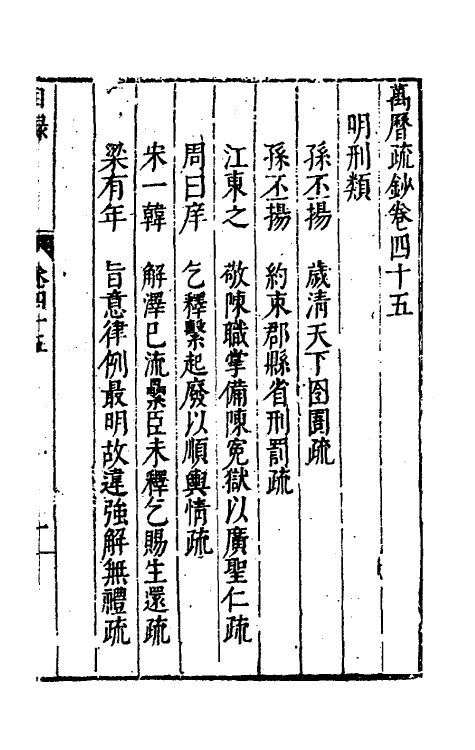 萬曆疏鈔卷四十五
明刑類
孫丕揚 歲清天下囹圄疏
孫丕揚 約束郡縣省刑罰疏
江東之 敬陳職掌備陳寃獄以廣聖仁疏
周曰庠 乞釋繫起廢以順輿情疏
宋一韓 解澤已流纍臣未釋乞賜生還疏
梁有年 旨意律例最明故違強解無禮疏
目錄 卷四十五 一